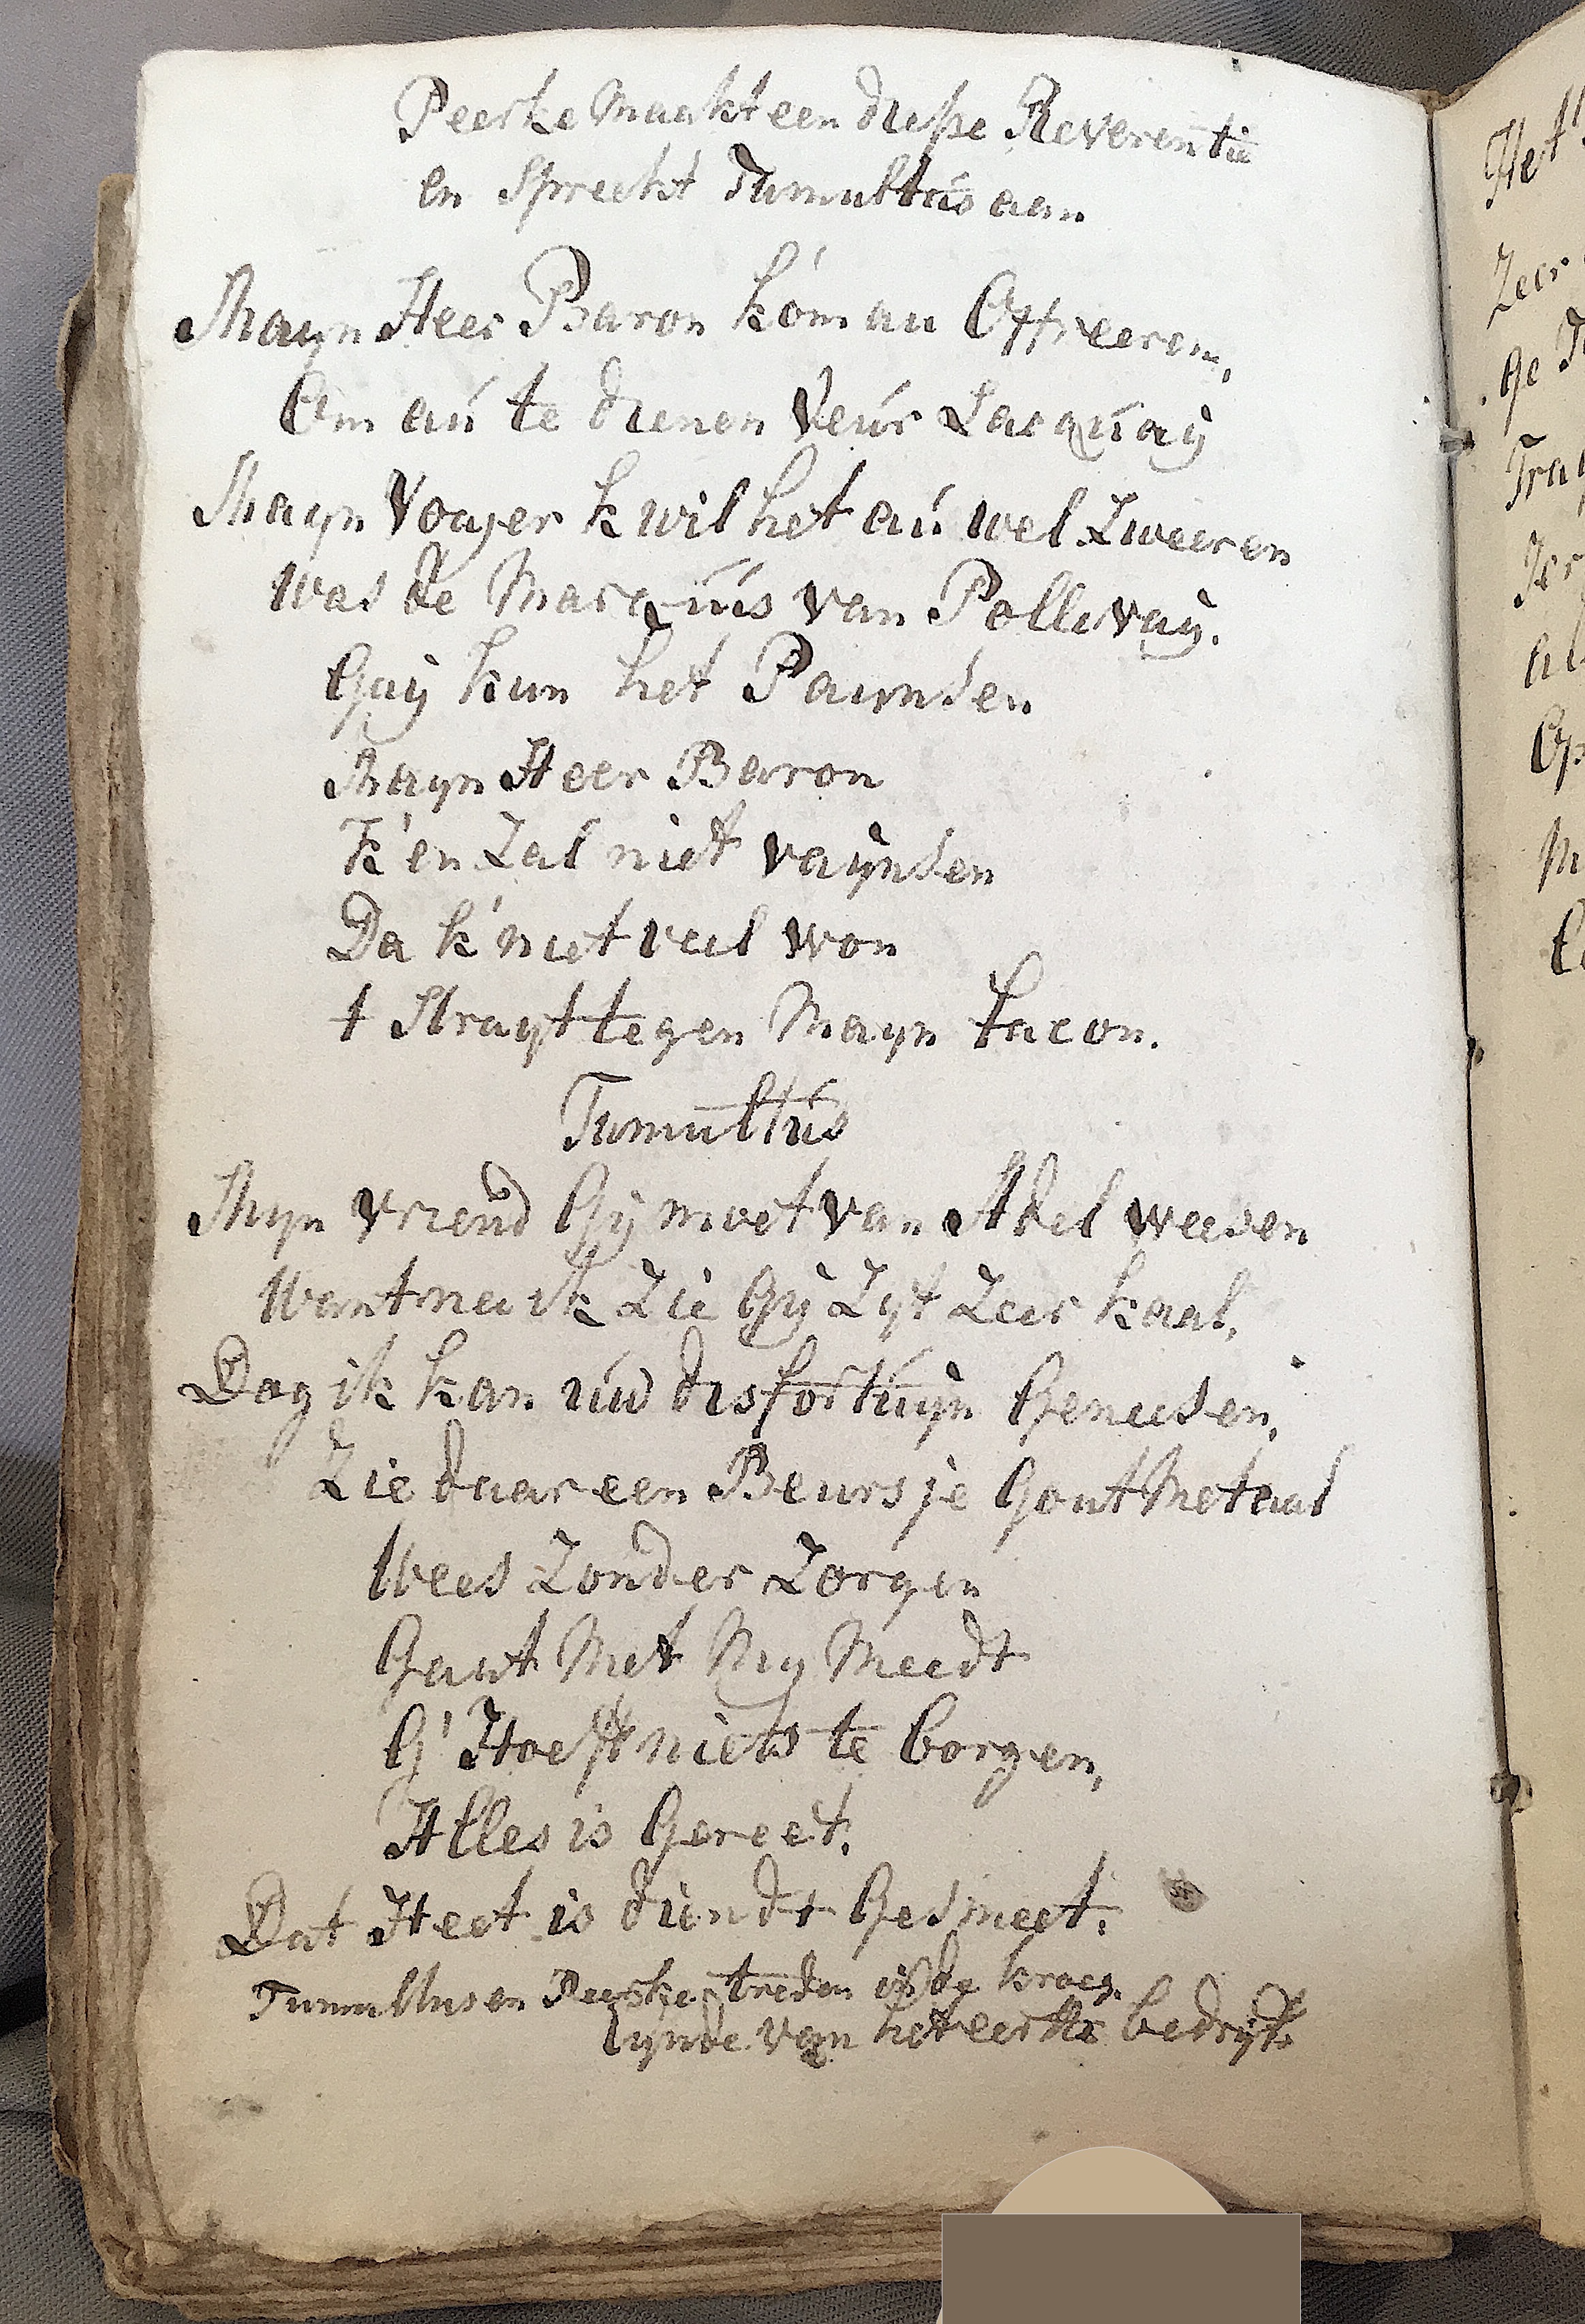 Peerke Maakt een diepe Reverentie
en Spreekt Tumultus aan.
Mayn Heer Baron k'om au Offreeren,
Om aú te dienen veúr Lacquay
Mayn Voayer k wil het aú wel Zweeren
was de Marquis van Pollevay.
Gay kun het Paynsen
Mayn Heer Baron
K'en Zal niet vaynsen
Da k' niet veel won
t Strayt tegen Mayn facon.
Tumultus
Myn vriend Gy moet van Adel weesen
Want na ik Zie Gy Zyt Zeer kaal,
Dog ik kan uw disfortuyn Geneesen,
Zie daar een Beursje Gout Metaal
Wees Zonder Zorgen
Gaat Met My Meedt
G' Hoeft niets te borgen,
Alles is Gereet,
Dat Heet is diendt Gesmeet.
Tumultus en Peerke treden in de kroeg.
Eynde van het eerste bedryf
Het
Zeer
ge
Tra
al
Op
M